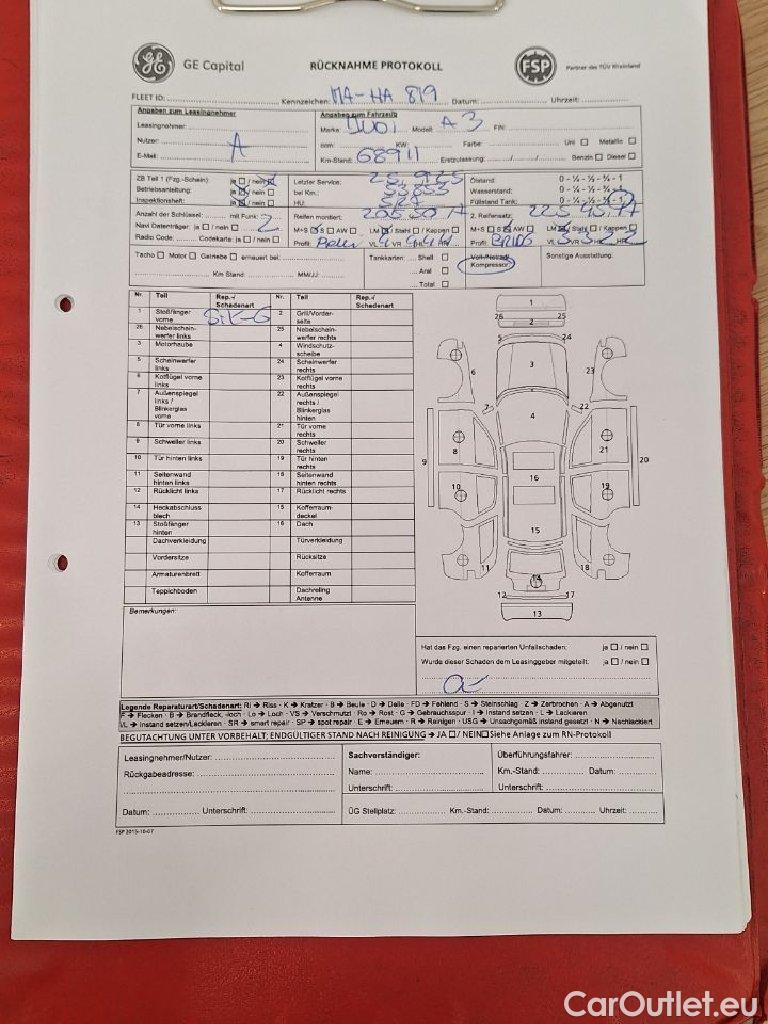 GE Capital
RÜCKNAHME PROTOKOLL
FSP
Partner des TÜV Rheinland
FLEET ID: Kennzeichen: MA-HA 819 Datum: Uhrzeit:
Angaben zum Leasingnehmer
Angaben zum Fahrzeug
Leasingnehmer:
Marke Modell: A3 FIN:
Nutzer: A
ccm: KW: Farbe: Uni Metallic
E-Mail:
Km-Stand: 68911 Erstzulassung: Benzin Diesel
ZB Teil 1 (Fzg.-Schein): ja / nein
Letzter Service:
Ölstand: 0 - ¼ - ½ - ¾ - 1
Betriebsanleitung: ja / nein
bei Km.:
Wasserstand: 0 - ¼ - ½ - ¾ - 1
Inspektionsheft: ja / nein
HU:
Füllstand Tank: 0 - ¼ - ½ - ¾ - 1
Anzahl der Schlüssel: mit Funk: 2
Reifen montiert:
2. Reifensatz:
Navi Datenträger: ja / nein
M+S S AW LM / Stahl / Kappen
M+S S AW LM / Stahl / Kappen
Radio Code: Codekarte: ja / nein
Profil:
Profil:
Tacho Motor Getriebe erneuert bei:
Km Stand: MM/JJ:
Tankkarten: Shell
Aral
Total
Kompressor:
Sonstige Ausstattung:
Nr. Teil Rep.-/ Schadenart Nr. Teil Rep.-/ Schadenart
1 Stoßfänger vorne 2 Grill/Vorderseite
26 Nebelscheinwerfer links 25 Nebelscheinwerfer rechts
3 Motorhaube 4 Windschutzscheibe
5 Scheinwerfer links 24 Scheinwerfer rechts
6 Kotflügel vorne links 23 Kotflügel vorne rechts
7 Außenspiegel links / Blinkerglas vorne 22 Außenspiegel rechts / Blinkerglas hinten
8 Tür vorne links 21 Tür vorne rechts
9 Schweller links 20 Schweller rechts
10 Tür hinten links 19 Tür hinten rechts
11 Seitenwand hinten links 18 Seitenwand hinten rechts
12 Rücklicht links 17 Rücklicht rechts
14 Heckabschlussblech 15 Kofferraumdeckel
13 Stoßfänger hinten 16 Dach
Dachverkleidung Türverkleidung
Vordersitze Rücksitze
Armaturenbrett Kofferraum
Teppichboden Dachreling Antenne
1
26 25
2
5 24
3
6 23
7 22
4
8 21
9 20
16
10 19
15
11 18
14
12 17
13
Bemerkungen:
Hat das Fzg. einen reparierten Unfallschaden: ja / nein
Wurde dieser Schaden dem Leasinggeber mitgeteilt: ja / nein
Legende Reparaturart/Schadenart: RI → Riss · K → Kratzer · B → Beule · D → Delle · FD → Fehlend · S → Steinschlag · Z → Zerbrochen · A → Abgenutzt
F → Flecken · B → Brandfleck, -loch · Lo → Loch · VS → Verschmutzt · Ro → Rost · G → Gebrauchsspur · I → Instand setzen · L → Lackieren
VL → Instand setzen/Lackieren · SR → smart repair · SP → spot repair · E → Erneuern · R → Reinigen · USG → Unsachgemäß instand gesetzt · N → Nachlackiert
BEGUTACHTUNG UNTER VORBEHALT; ENDGÜLTIGER STAND NACH REINIGUNG → JA / NEIN Siehe Anlage zum RN-Protokoll
Leasingnehmer/Nutzer:
Sachverständiger:
Überführungsfahrer:
Rückgabeadresse:
Name:
Km.-Stand: Datum:
Unterschrift:
Unterschrift:
Datum: Unterschrift:
ÜG Stellplatz: Km.-Stand: Datum: Uhrzeit:
FSP 2015-10-07
CarOutlet.eu